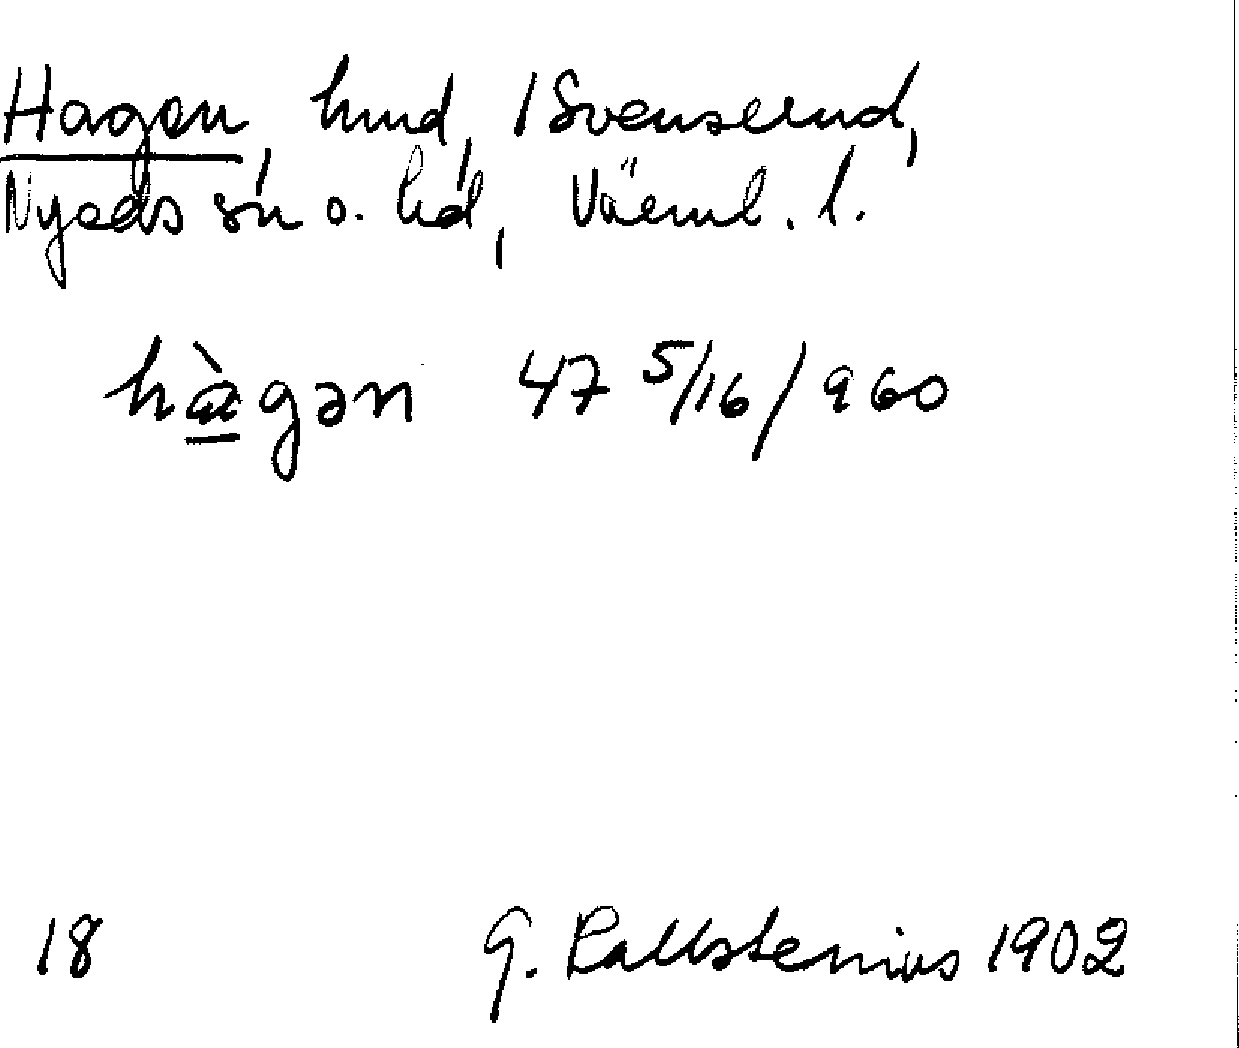 Hagen, hmd, 1 Svenserud,
Nyeds sn o. hd, Värml. l.
hàgən 47 5/16/960
18 G. Kallstenius 1902